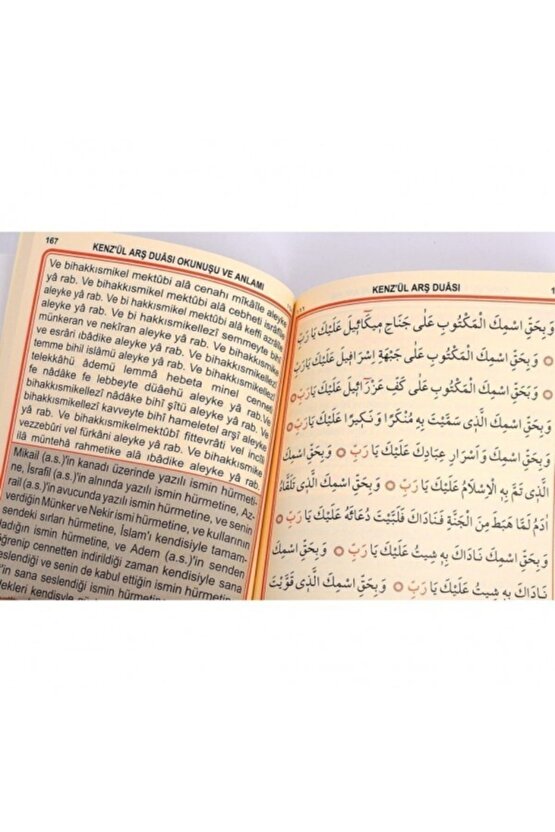 167
KENZ'ÜL ARŞ DUÂSI OKUNUŞU VE ANLAMI
Ve bihakkısmikel mektûbi alâ cenahı mîkâîle aleyke
yâ rab. Ve bihakkısmikel mektûbi alâ cebheti isrâfîle
aleyke yâ rab. Ve bi hakkısmikel mektûbi alâ keffi azrâîle
aleyke yâ rab. Ve bi hakkısmikellezî semmeyte bihî
münkeran ve nekîran aleyke yâ rab. Ve bihakkısmike
ve esrâri ıbâdike aleyke yâ rab. Ve bihakkısmikellezî
temme bihil islâmü aleyke yâ rab. Ve bihakkısmikellezî
telekkâhü âdemü lemmâ hebeta minel cenneti
fe nâdâke fe lebbeyte düâehü aleyke yâ rab. Ve
bihakkısmikellezî nâdâke bihî şîtü aleyke yâ rab. Ve
bihakkısmikellezî kavveyte bihî hameletel arşi aleyke
yâ rab. Ve bihakkısmikelmektûbi fittevrâti vel incîli
vezzebûri vel fürkâni aleyke yâ rab. Ve bihakkısmike
ilâ müntehâ rahmetike alâ ıbâdike aleyke yâ rab.
Mikail (a.s.)'in kanadı üzerinde yazılı ismin hürmeti-
ne, İsrafil (a.s.)'in alnında yazılı ismin hürmetine, Az-
rail (a.s.)'in avucunda yazılı ismin hürmetine, ve senin
verdiğin Münker ve Nekir ismi hürmetine, ve kullarının
sendeki sırları hürmetine, İslam'ı kendisiyle tamam-
ladığın ismin hürmetine, ve Adem (a.s.)'in senden
öğrenip cennetten indirildiği zaman kendisiyle sana
seslendiği ve senin de kabul ettiğin ismin hürmetine,
'in sana seslendiği ismin hürmetine
lekleri kendisiyle
KENZ'ÜL ARŞ DUÂSI
وَ بِحَقِّ اسْمِكَ الْمَكْتُوبِ عَلٰى جَنَاحِ مِيكَٓائِيلَ عَلَيْكَ يَا رَبِّ
وَ بِحَقِّ اسْمِكَ الْمَكْتُوبِ عَلٰى جَبْهَةِ اِسْرَافِيلَ عَلَيْكَ يَا رَبِّ
وَ بِحَقِّ اسْمِكَ الْمَكْتُوبِ عَلٰى كَفِّ عَزْرَٓائِيلَ عَلَيْكَ يَا رَبِّ
وَ بِحَقِّ اسْمِكَ الَّذِى سَمَّيْتَ بِهِ مُنْكَرًا وَ نَكِيرًا عَلَيْكَ يَا رَبِّ
وَ بِحَقِّ اسْمِكَ وَ اَسْرَارِ عِبَادِكَ عَلَيْكَ يَا رَبِّ وَ بِحَقِّ اسْمِكَ
الَّذِى تَمَّ بِهِ الْاِسْلَامُ عَلَيْكَ يَا رَبِّ وَ بِحَقِّ اسْمِكَ الَّذِى تَلَقَّاهُ
اٰدَمُ لَمَّا هَبَطَ مِنَ الْجَنَّةِ فَنَادَاكَ فَلَبَّيْتَ دُعَائَهُ عَلَيْكَ يَا رَبِّ
وَ بِحَقِّ اسْمِكَ نَادَاكَ بِهِ شِيتُ عَلَيْكَ يَا رَبِّ وَ بِحَقِّ اسْمِكَ
نَادَاكَ بِهِ شِيتُ عَلَيْكَ يَا رَبِّ وَ بِحَقِّ اسْمِكَ الَّذِى قَوَّيْتَ